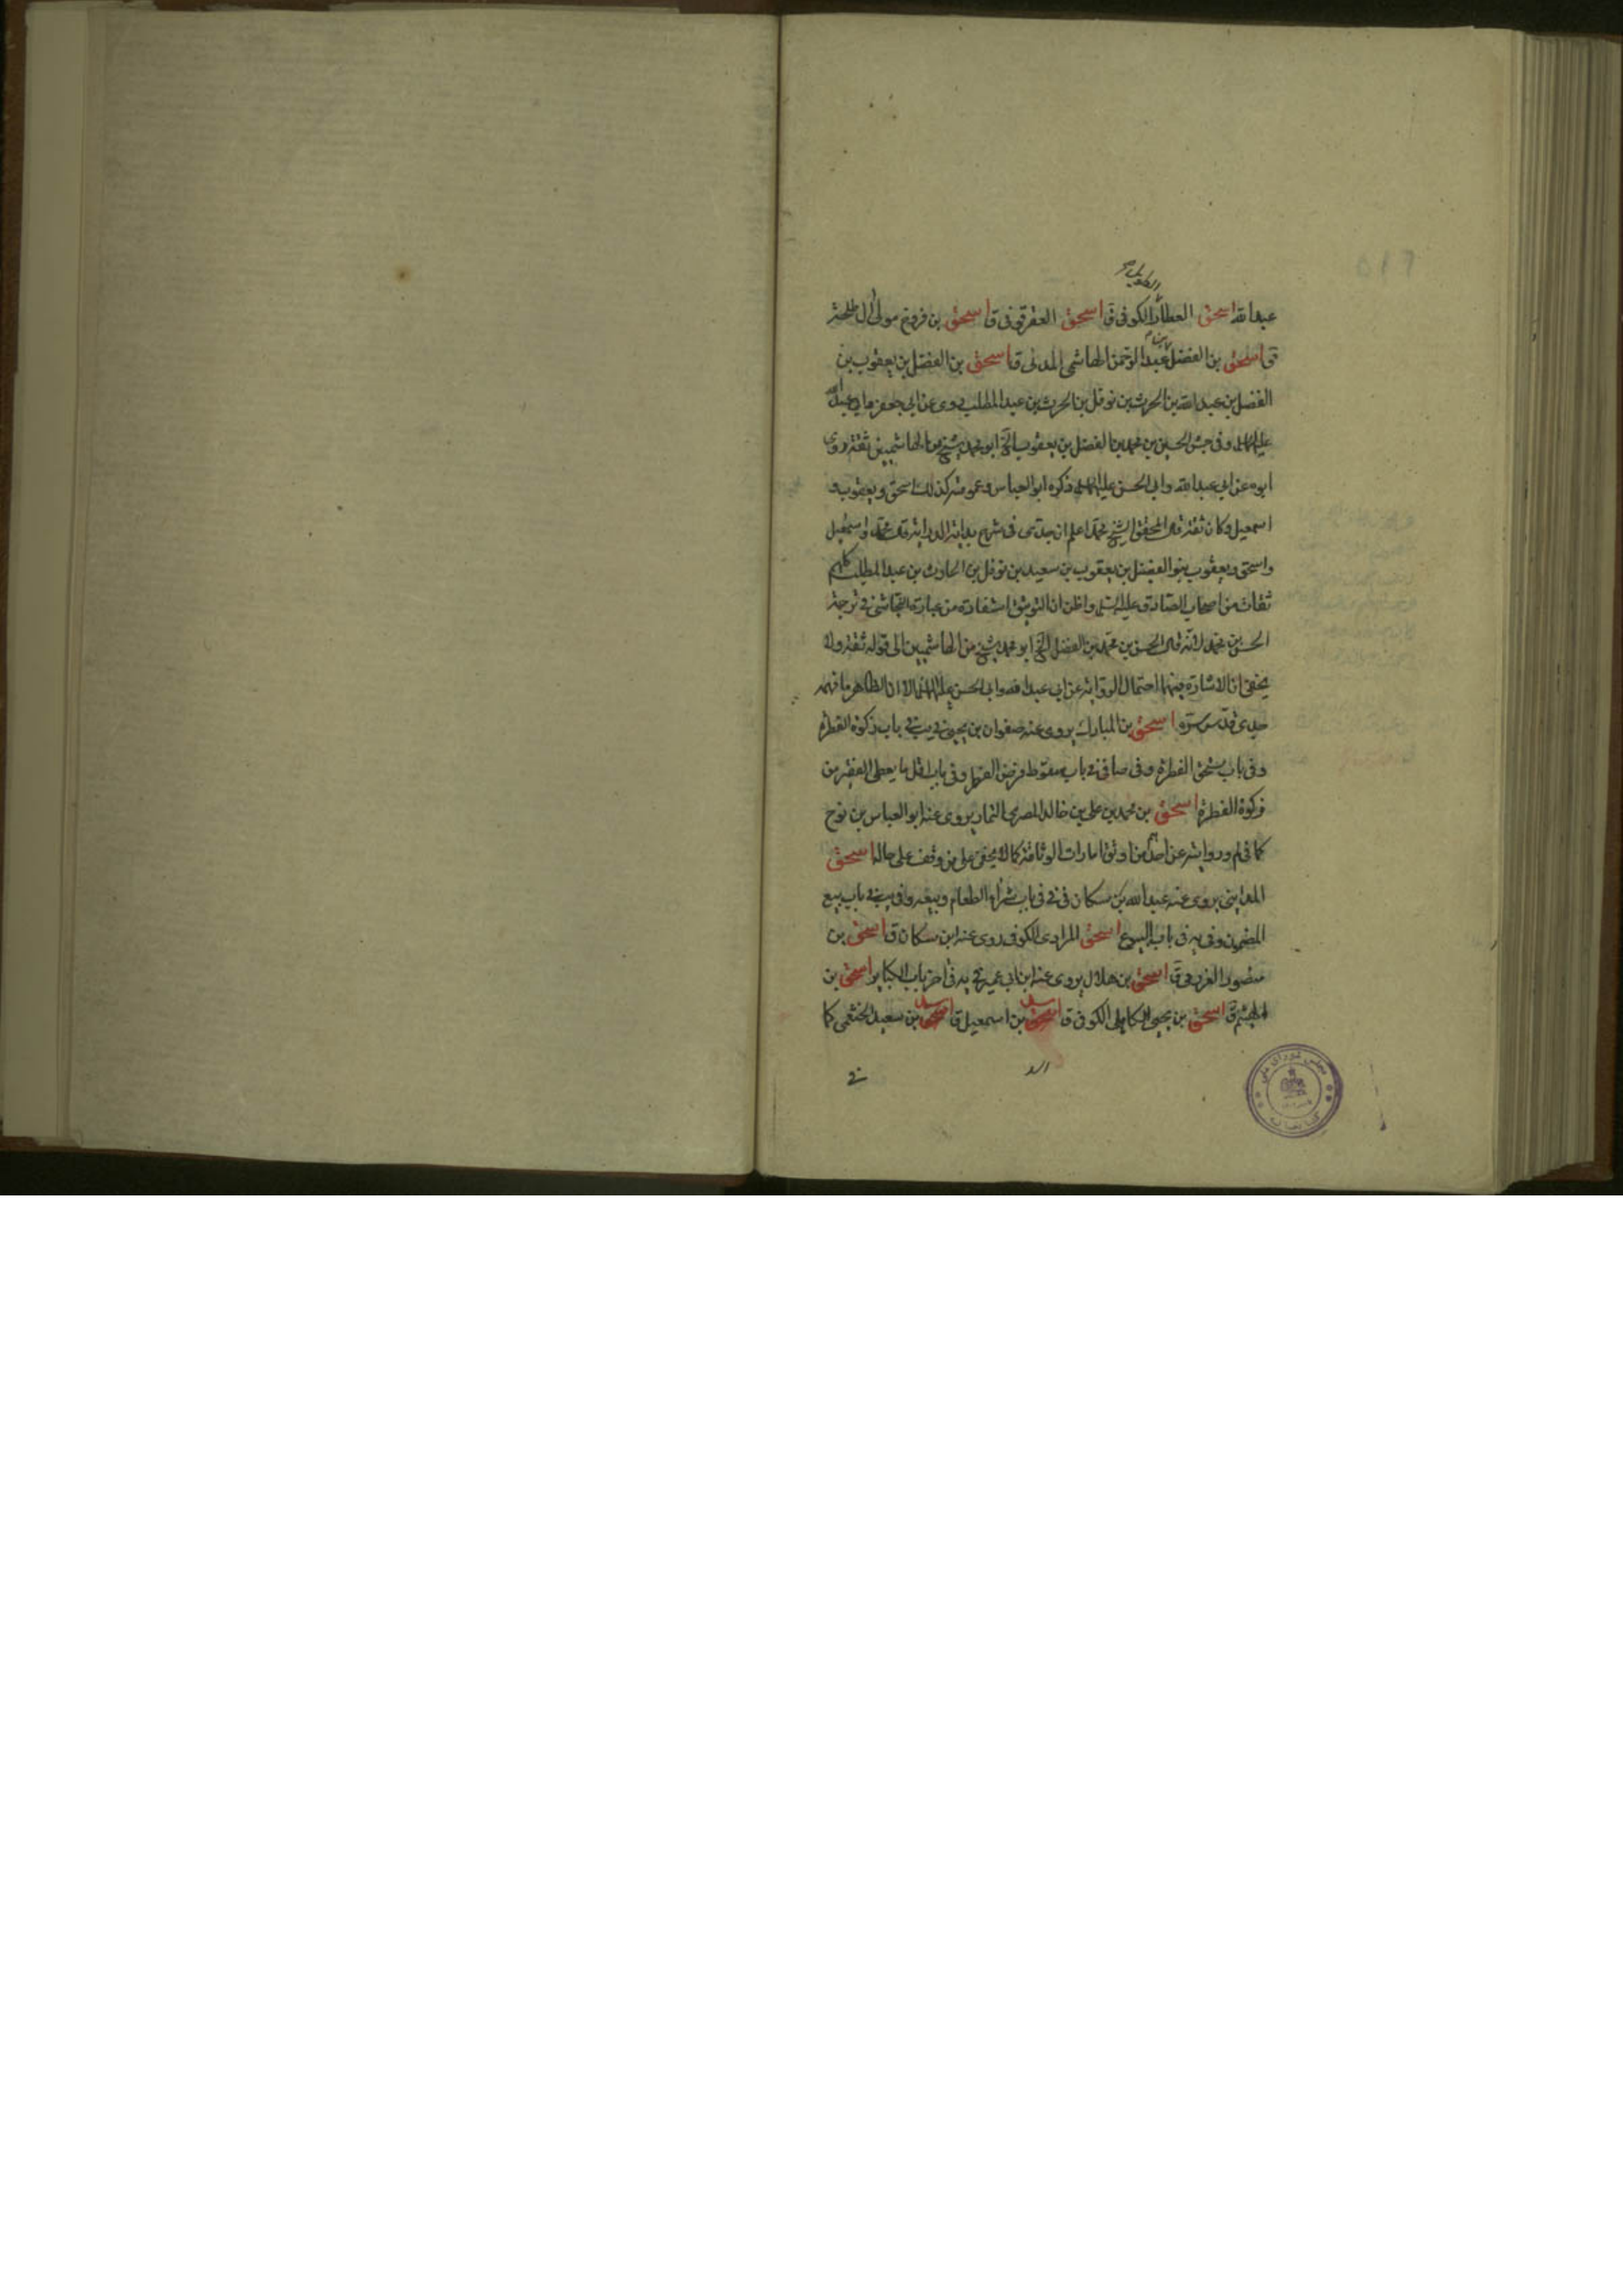 الطويل
عبدالله اسحق العطار الكوفى ق اسحق العقرقوفى ق اسحق بن فروخ مولى ال طلحة
ق اسحق بن الفضل بن عبد الرحمن الهاشمى المدنى ق اسحق بن الفضل بن يعقوب بن
الفضل بن عبد الله بن الحرث بن نوفل بن الحرث بن عبد المطلب روى عن ابى جعفر وابى عبدالله
عليهما وفى جش الحسين بن محمد بن الفضل بن يعقوب الخ ابو محمد شيخ من الهاشميين ثقة روى
ابوه عن ابى عبد الله وابى الحسن عليهما ذكره ابو العباس وعمومته كذلك اسحق ويعقوب و
اسمعيل وكان ثقة قال المحقق الشيخ محمد اعلم ان جدى فى شرح بداية الدراية قال محمد واسمعيل
واسحق ويعقوب بنو الفضل بن يعقوب بن سعيد بن نوفل بن الحارث بن عبد المطلب كلهم
ثقات من اصحاب الصادق عليه السلم واظن ان التوثيق استفادة من عبارة النجاشى فى ترجمة
الحسين بن محمد لانه قال الحسن بن محمد بن الفضل الخ ابو محمد شيخ من الهاشميين الى قوله ثقة ولا
يخفى ان الاشارة فيها احتمال الرواية عن ابى عبد الله وابى الحسن عليهما الا ان الظاهر ما فهمه
جدى قدس سره اسحق بن المبارك يروى عنه صفوان بن يحيى فى يب فى باب زكوة الفطرة
وفى باب مستحق الفطرة وفى صا فى باب سقوط فرض الفطر وفى باب اقل ما يعطى الفقير من
زكوة الفطرة اسحق بن محمد بن على بن خالد المصرى التمار يروى عنه ابو العباس بن نوح
كما فى لم وروايته عن احد من اوثق امارات الوثاقة كما لا يخفى على من وقف على حاله اسحق
المداينى يروى عنه عبد الله بن مسكان فى فى فى باب شراء الطعام وبيعه وفى يب فى باب بيع
المضمون وفى يه فى باب البيوع اسحق المرادى الكوفى روى عنه ابن مسكان ق اسحق بن
منصور العزرمى ق اسحق بن هلال يروى عنه ابن ابى عمير فى يه فى اخر باب الكباير اسحق بن
الهيثم ق اسحق بن يحيى الكاهلى الكوفى ق اسد بن اسمعيل ق اسد بن سعيد الخثعمى كما
اسد
فى